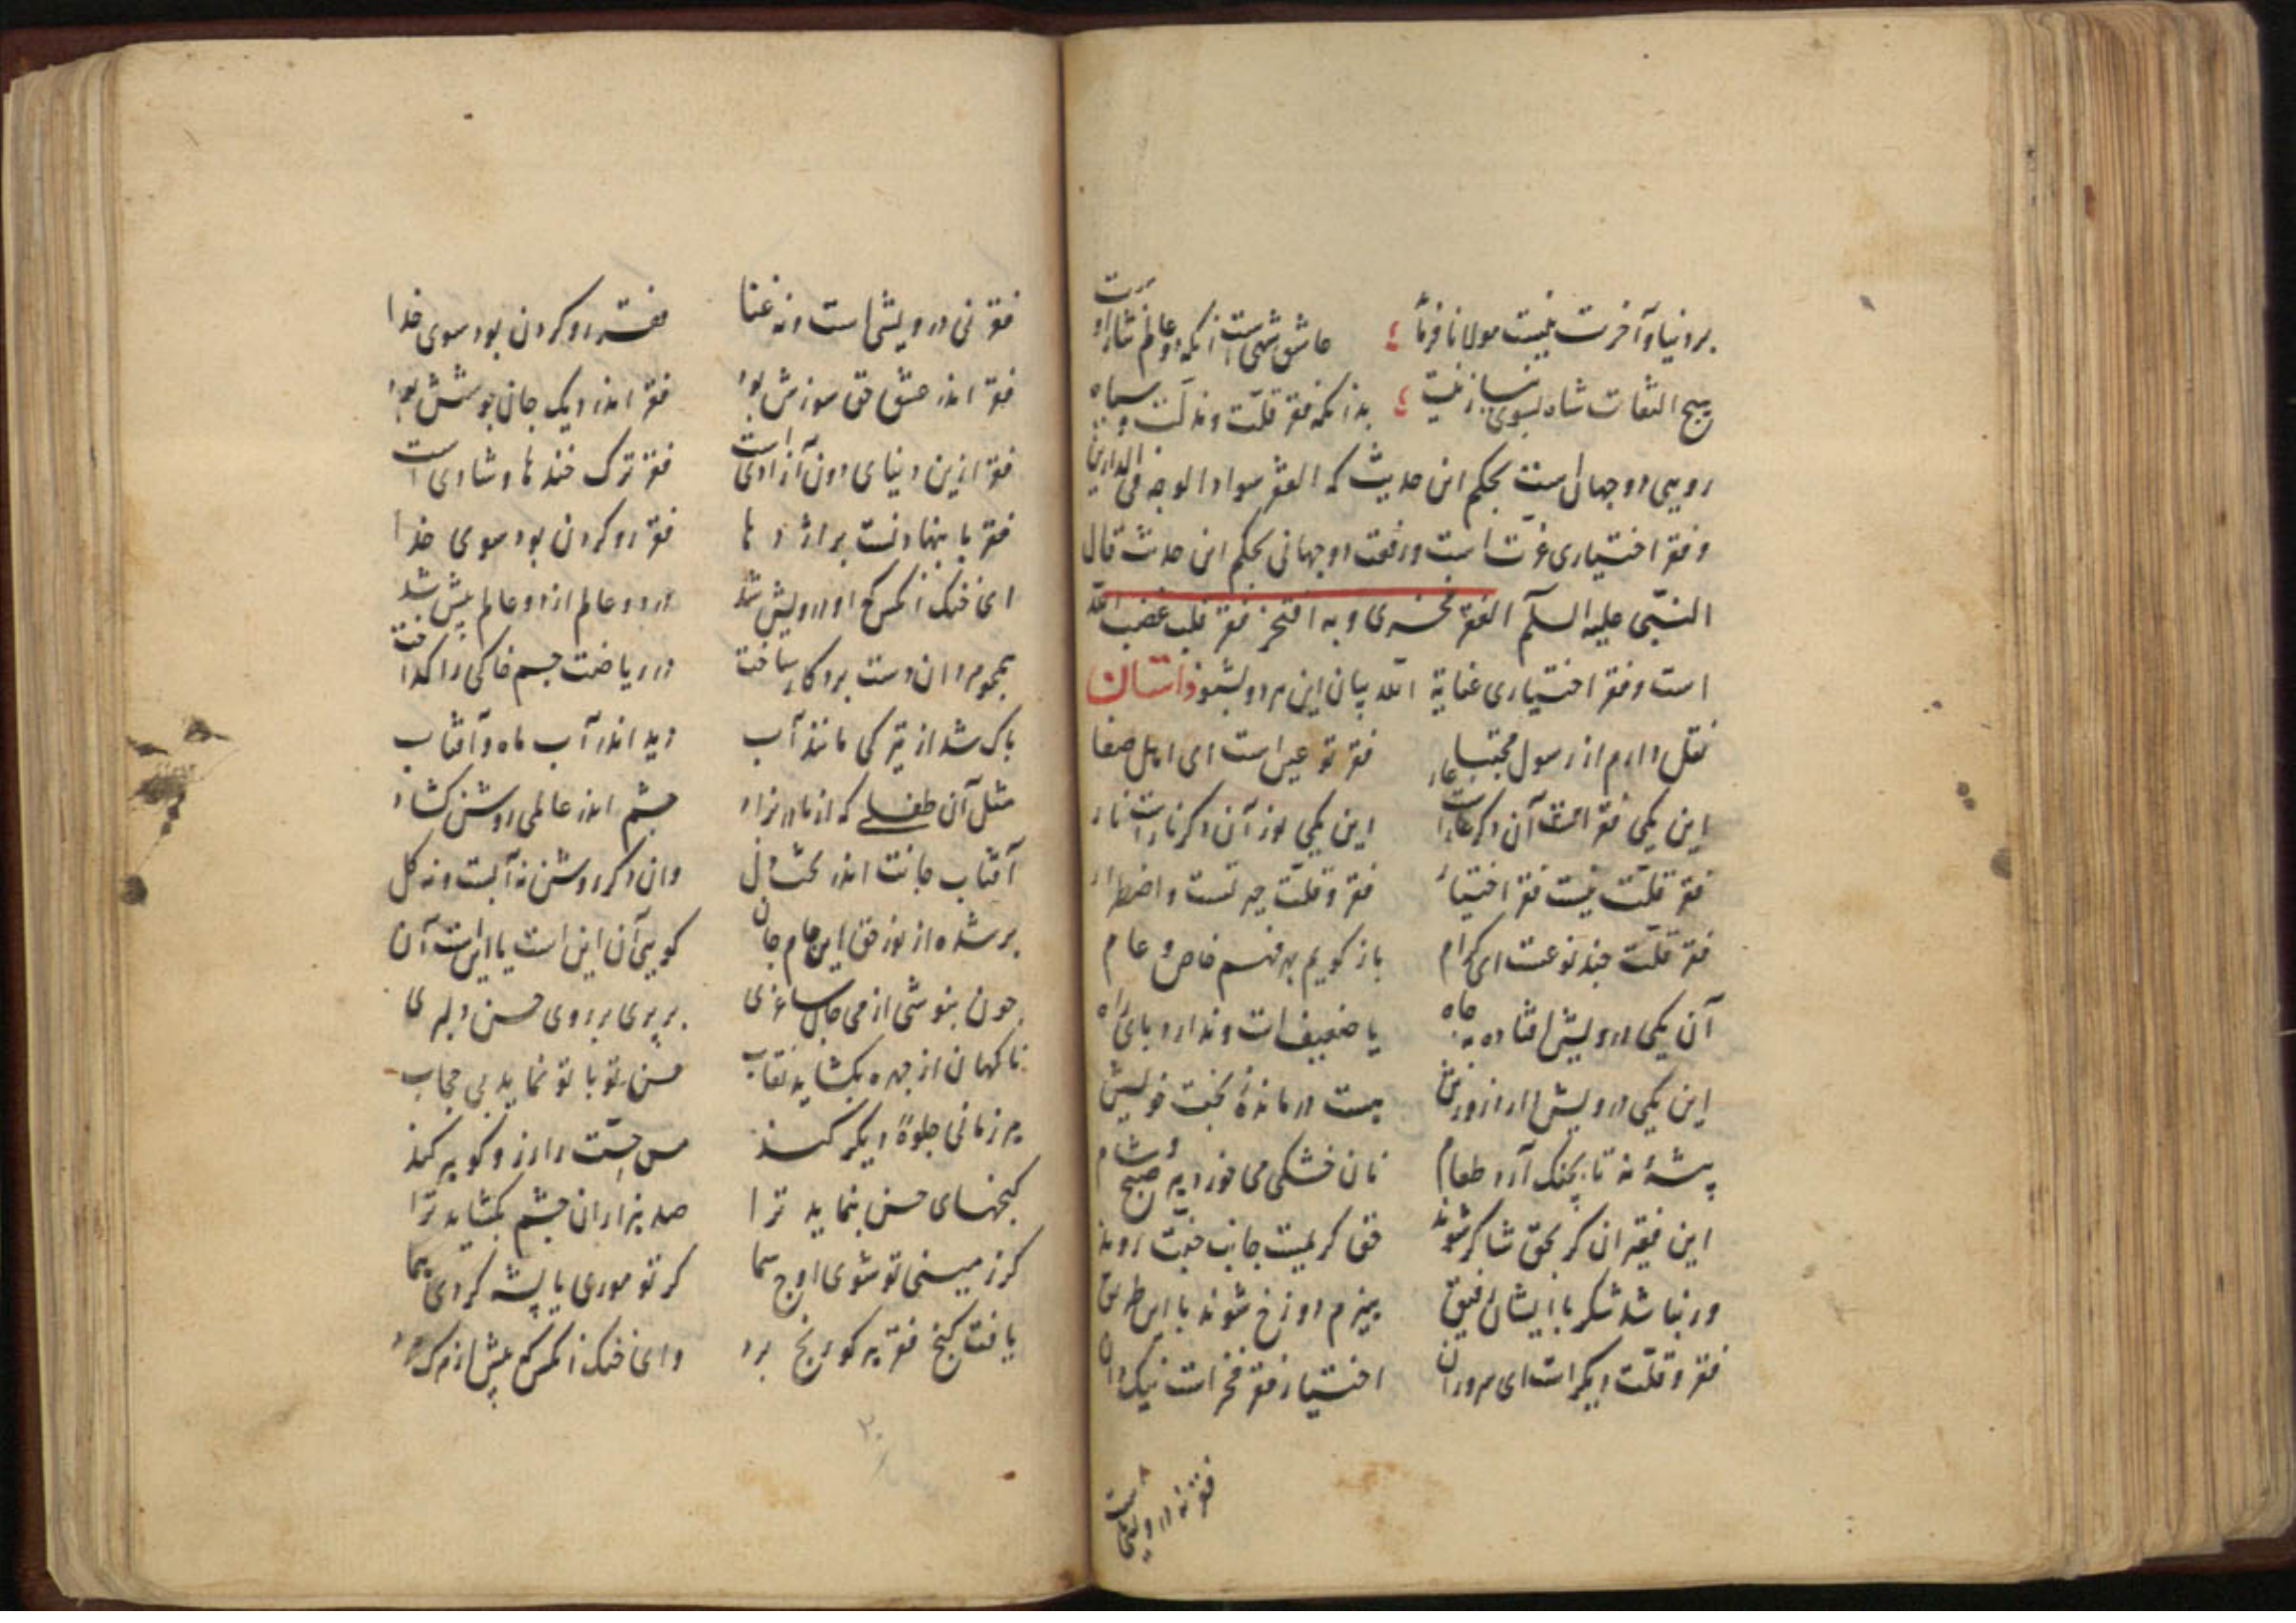 بر دنیا و آخرت نیست مولانا فرماید ع عاشق شهیست زانکه دو عالم نثار اوست
هیچ التفات شاه بسوی نیاز نیست ع بدانکه فقر قلت و مذلت و سیاه
رویی دو جهان است بحکم این حدیث که الفقر سواد الوجه فی الدارین
و فقر اختیاری عزت است و رفعت دو جهانی بحکم این حدیث قال
النبی علیه السلام الفقر فخری و به افتخر فقر قلت غضب الله
است و فقر اختیاری عنایة الله بیان این هر دو بشنو داستان
نقل دارم از رسول مجتبا فقر تو عین است ای اهل صفا
این یکی فقر است آن دکر عار این یکی نور آن دکر نار است نار
فقر قلت نیست فقر اختیار فقر و قلت چیست و اضطرار
فقر قلت چند نوعست ای کرام باز کویم بهر فهم خاص و عام
آن یکی درویش افتاده بچاه یا ضعیف است و ندارد پای راه
این یکی درویش هست درماندهٔ بخت خویش
پیشهٔ نه تا بچنک آرد طعام نان خشکی می خورد هر صبح و شام
این فقیران کر بحق شاکر شوند حق کریمست جانب جنت روند
ور نباشد شکر با ایشان رفیق هیزم دوزخ شوند با این طریق
فقر و قلت دیکر است ای سروران اختیار فقر فخر است نیک دان
فقر نه درویشی است
فقر نی درویشی است و نه غنا فقر رو کردن بود سوی خدا
فقر اندر عشق حق سوزش بود فقر اندر دیک جان جوشش بود
فقر ازین دنیای دون آزادی است فقر ترک خنده ها و شادی است
فقر پا بنهادنست بر اژدها فقر رو کردن بود سوی خدا
ای خنک آنکس که او درویش شد در دو عالم از دو عالم پیش شد
همچو مردان دست برد کار ساخت در ریاضت جسم خاکی را کداخت
پاک شد از تیرکی مانند آب دید اندر آب ماه و آفتاب
مثل آن طفلی که از مادر نزاد چشم اندر عالمی روشن کشاد
آفتاب جانت اندر تحت دل وان دکر روشن نه آبست و نه کل
پر شده از نور حق این جام جان کویی آن این است یا این است آن
چون بنوشی از می جان ساغری بر پری بر روی حسن دلبری
ناکهان از چهره بکشاید نقاب حسن تو با تو نماید بی حجاب
هر زمانی جلوهٔ دیکر کند مس جسمت را زر و کوهر کند
کنجهای حسن بنماید ترا صد هزاران چشم بکشاید ترا
کر زمینی تو شوی اوج سما کر تو موری یا پشه کردی هما
یافت کنج فقر هر کو رنج برد وای خنک آنکس که پیش از مرک مرد